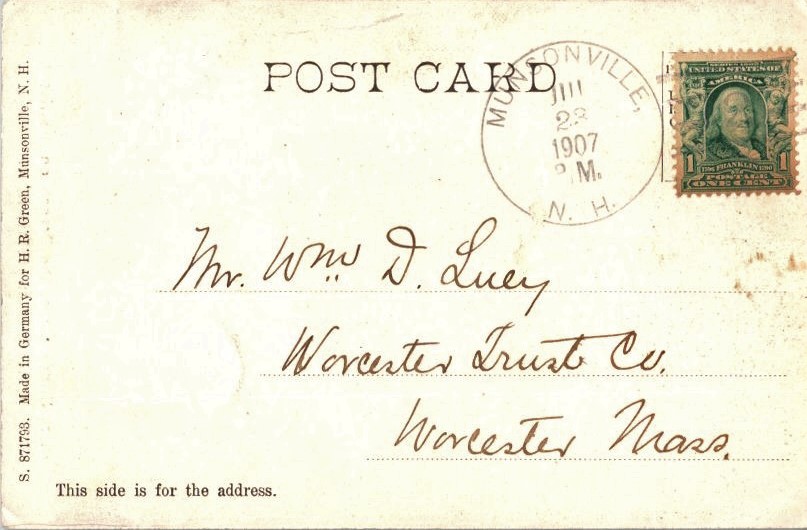 POST CARD
MUNSONVILLE,
JUL
23
1907
M.
N. H.
SERIES 1902
UNITED STATES OF
AMERICA
1 1706 FRANKLIN 1790 1
POSTAGE
ONE CENT
Mr. Wm. D. Lucy
Worcester Trust Co.
Worcester Mass.
This side is for the address.
S. 871793. Made in Germany for H. R. Green, Munsonville, N. H.